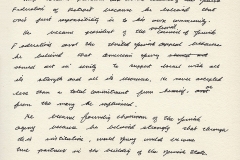 Federation of Detroit because he believed that
one's first responsibility is to his own community.
He became president of the national Council of Jewish
Federations and the United Jewish Appeal because
he believed that American Jewry
and act in unity to support Israel with all
its strength and all its resources. He never accepted
less than a total commitment from himself, nor
from the many he influenced.
He became founding chairman of the Jewish
Agency because he believed strongly that through
that institution, world Jewry could become
true partners in the building of the Jewish State.